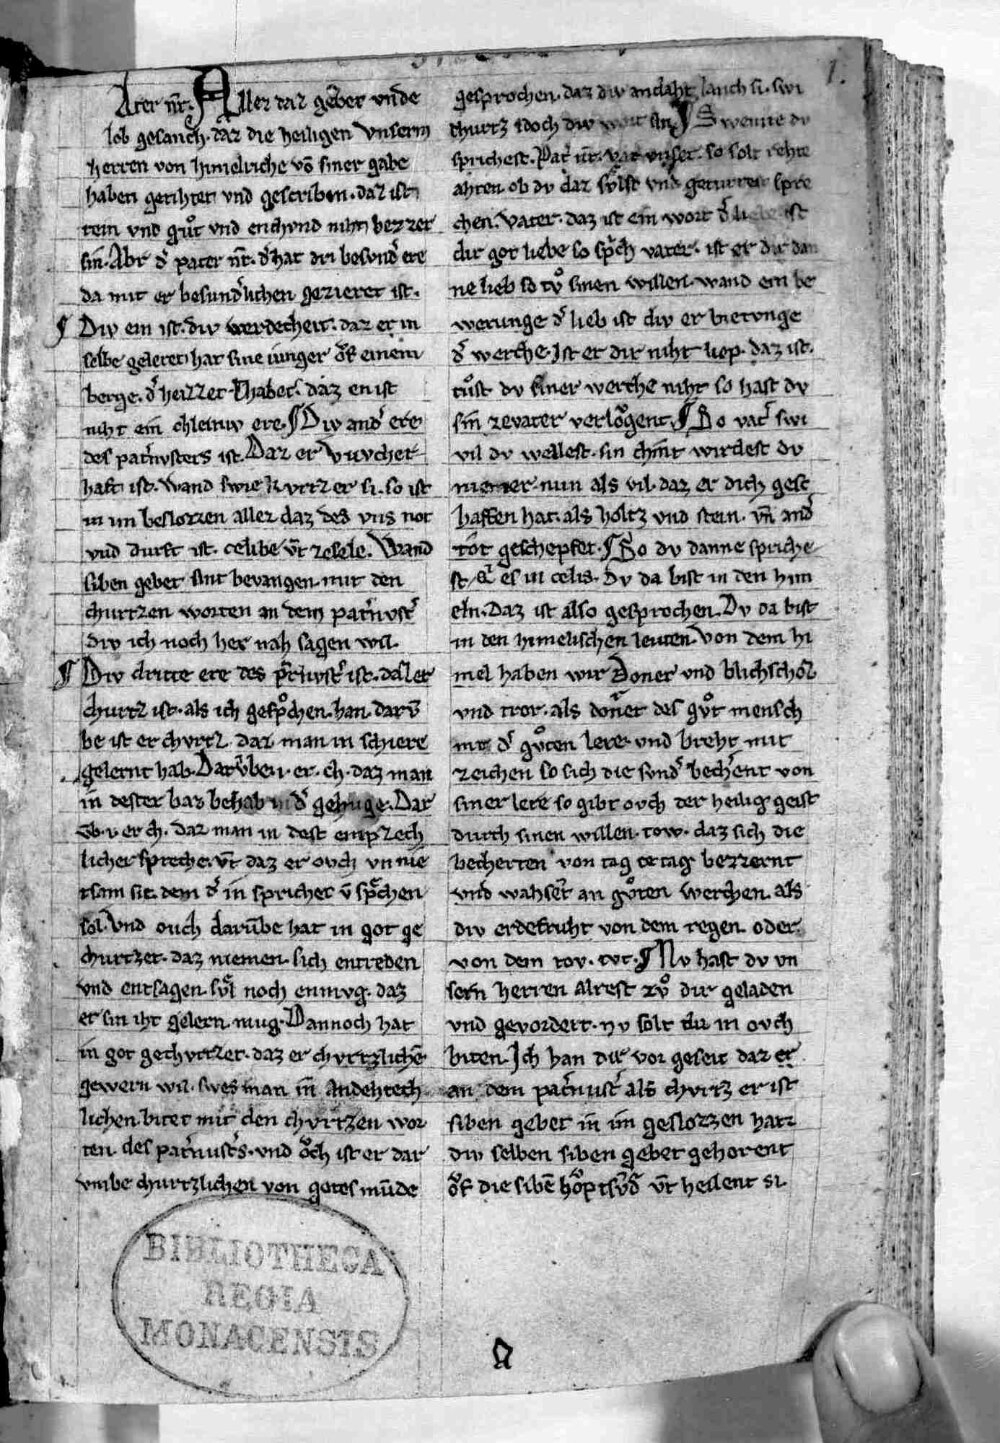 1.
Ater nr̄. Allez daz gebet vnde
lob gesanch. daz die heiligen vnserm
herren von himelriche vō siner gabe
habent getihtet vnd gescriben. daz ist
rein vnd gůt vnd enchvnd niht bezzer
sin. Abr d̓ pater nr̄. d̓ hat dri besvnd̓ ere
da mit er besund̓lichen gezieret ist.
¶ Div ein ist. div werdecheit. daz er in
selbe geleret hat sine iunger vf einem
berge. d̓ heizzet Thabor. daz en ist
niht ein chleiniv ere. ¶ Div and̓ ere
des pat̓nvsters ist. Daz er Nvtzber
haft ist. Wand swie kvrtz er si. so ist
in im beslozzen allez daz des vns not
vnd durft ist. ce libe vn̄ ze sele. Wand
siben gebet sint bevangen. mit den
churtzen worten an dem pat̓nvst̓
div ich noch her nah sagen wil.
¶ Div dritte ere des pat̓nvst̓ ist. daz er
churtz ist. als ich gesp̊chen. han. darv̄
be ist er chvrtz. daz man in schiere
gelernt hab. Darv̄be. v. er. ch. daz man
in dester baz behab in d̓ gehuge. Dar
vb. v. er ch. daz man in dest emzech
licher spreche. vn̄ daz er ouch vn nie
tsam sit. dem d̓ in sprichet v̄ sp̊chen
sol. Vnd ouch darv̄be hat in got ge
churtzet. daz niemen. sich entreden
vnd entsagen. svl noch enmvg. daz
er sin iht gelern. mug. Dannoch hat
in got gechvrtzet. daz er chvrtzlichē
gewern wil. swes man in andehtech
lichen bitet mit den chvrtzen wor
ten des pat̓nust̓s. vnd och ist er dar
vmbe churtzlichen von gotes mūde
gesprochen. daz div andaht lanch si. swi
churtz idoch div wort sin. ¶ Swenne dv
sprichest. Pat̓ nr̄. vat̓ vnser. so solt rehte
ahten. ob dv daz svlst vnd geturrest spre
chen. Vater. daz ist ein wort d̓ liebe. ist
dir got liebe so sp̊ch vater. ist er dir dan
ne lieb so tů sinen willen. wand ein be
werunge d̓ lieb ist div er bietvnge
d̓ werche. Ist er dir niht liep. daz ist.
tůst dv siner werche niht so hast dv
sin ze vater verlogent. ¶ So vat̓ swi
vil dv wellest. sin chint wirdest dv
niemer. nun als vil. daz er dich gesc
haffen hat. als holtz vnd stein. vn̄ and̓
tot geschepfet. ¶ So dv danne spriche
st. Q̓ es in celis. Dv da bist in den him
eln. Daz ist also gesprochen. Dv da bist
in den himelischen leuten. Von dem hi
mel haben wir Doner vnd blichschoz
vnd tror. als doneret des gůt mensch
mit d̓ gůten lere. vnd breht mit
zeichen so sich die svnd̓ becherent von
siner lere so gibt ovch der heilig geist
durch sinen willen. tow. daz sich die
becherten von tag ce tag bezzernt
vnd wahsent an gůten werchen. als
div erdefruht von dem regen oder
von dem tov. tvt. ¶ Nv hast dv vn
sern herren alrest zů dir geladen
vnd gevordert. nv solt du in ovch
biten. Ich han dir vor geseit daz er
an dem pat̓nust̓ als chvrtz er ist
siben gebet in im geslozzen hat.
div selben siben gebet gehorent
vf die sibē hoptsvnd̓ vn̄ heilent si.
BIBLIOTHECA
REGIA
MONACENSIS